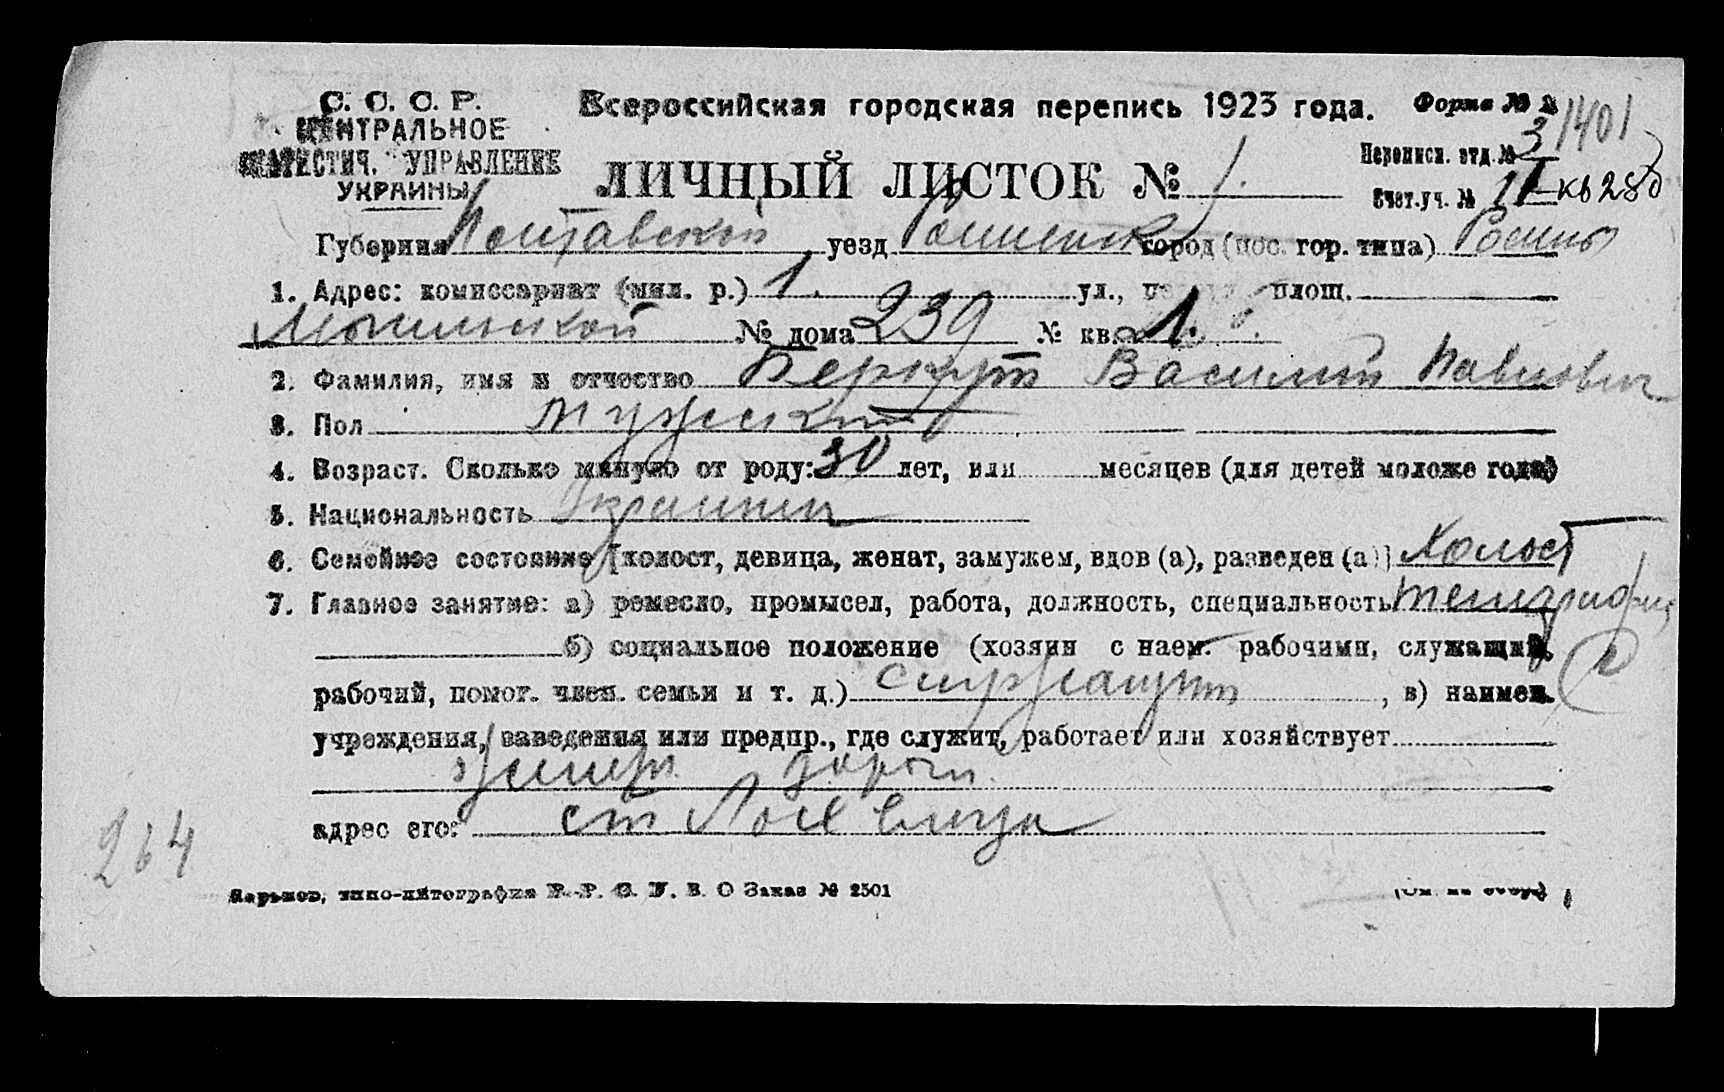 С. С. С. Р.
ЦЕНТРАЛЬНОЕ
СТАТИСТИЧ. УПРАВЛЕНИЕ
УКРАИНЫ
Всероссийская городская перепись 1923 года. Форма № 2
1401
ЛИЧНЫЙ ЛИСТОК № 1.
Переписн. отд. № 3
Счет. уч. № 11 кв 280
Губерния Полтавской уезд Роменск город (пос. гор. типа) Ромны
1. Адрес: комиссариат (мил. р.) 1. ул., площ.
№ дома 239 № кв. 1.
2. Фамилия, имя и отчество Беркут Василий Павлович
3. Пол мужской
4. Возраст. Сколько минуло от роду: 30 лет, или месяцев (для детей моложе года)
5. Национальность Украинец
6. Семейное состояние [холост, девица, женат, замужем, вдов (а), разведен (а)] Холост
7. Главное занятие: а) ремесло, промысел, работа, должность, специальность телеграфист
б) социальное положение (хозяин с наем. рабочими, служащий,
рабочий, помог. член. семьи и т. д.) служащий, в) наимен.
учреждения, заведения или предпр., где служит, работает или хозяйствует
дороги
адрес его: ст Лохвица
264
Харьков, типо-литография В. О Заказ № 2501
(См. на обор.)